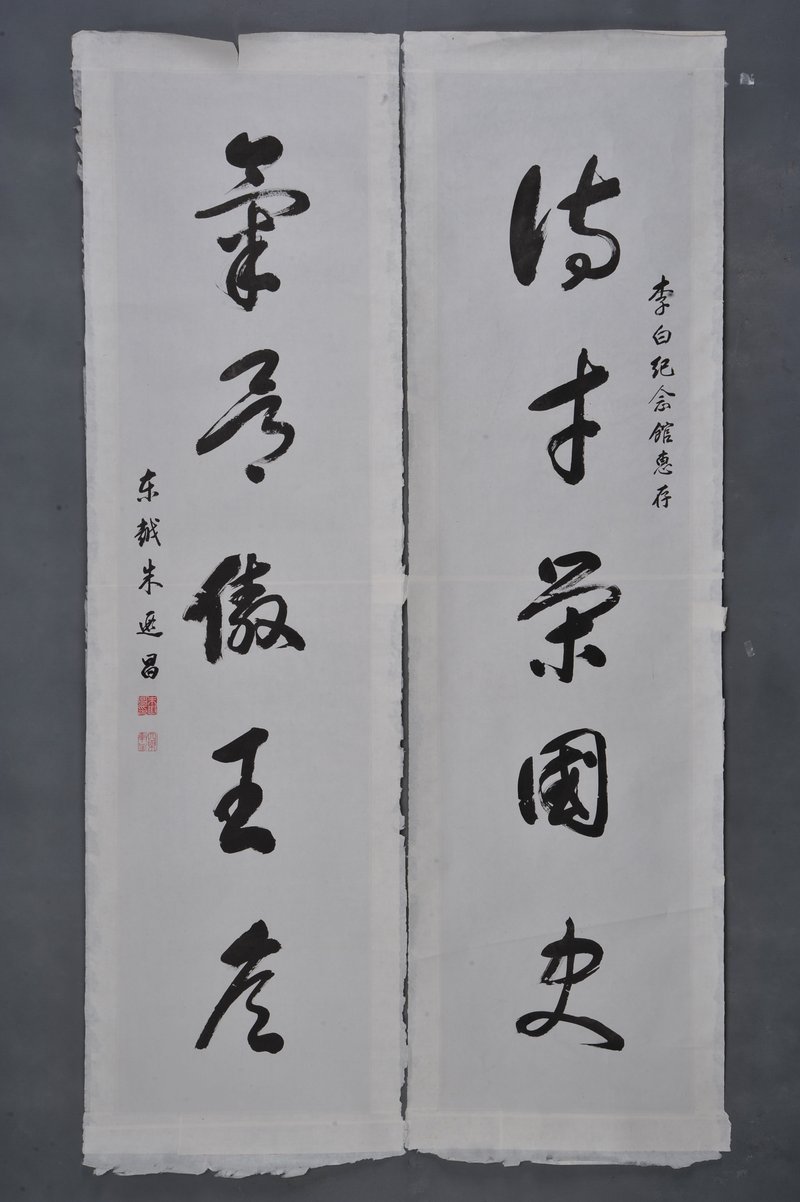 李白纪念馆惠存
诗才荣國史
氣傲王侯
东越朱昌